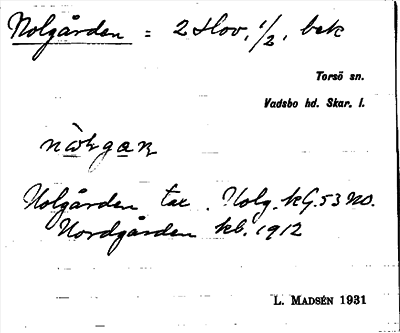 Nolgården = 2 Hov, 1/2, bek
Torsö sn.
Vadsbo hd. Skar. l.
Nolgården tax. Nolg. kG.53 No.
Nordgården kb. 1912
L. MADSÉN 1931